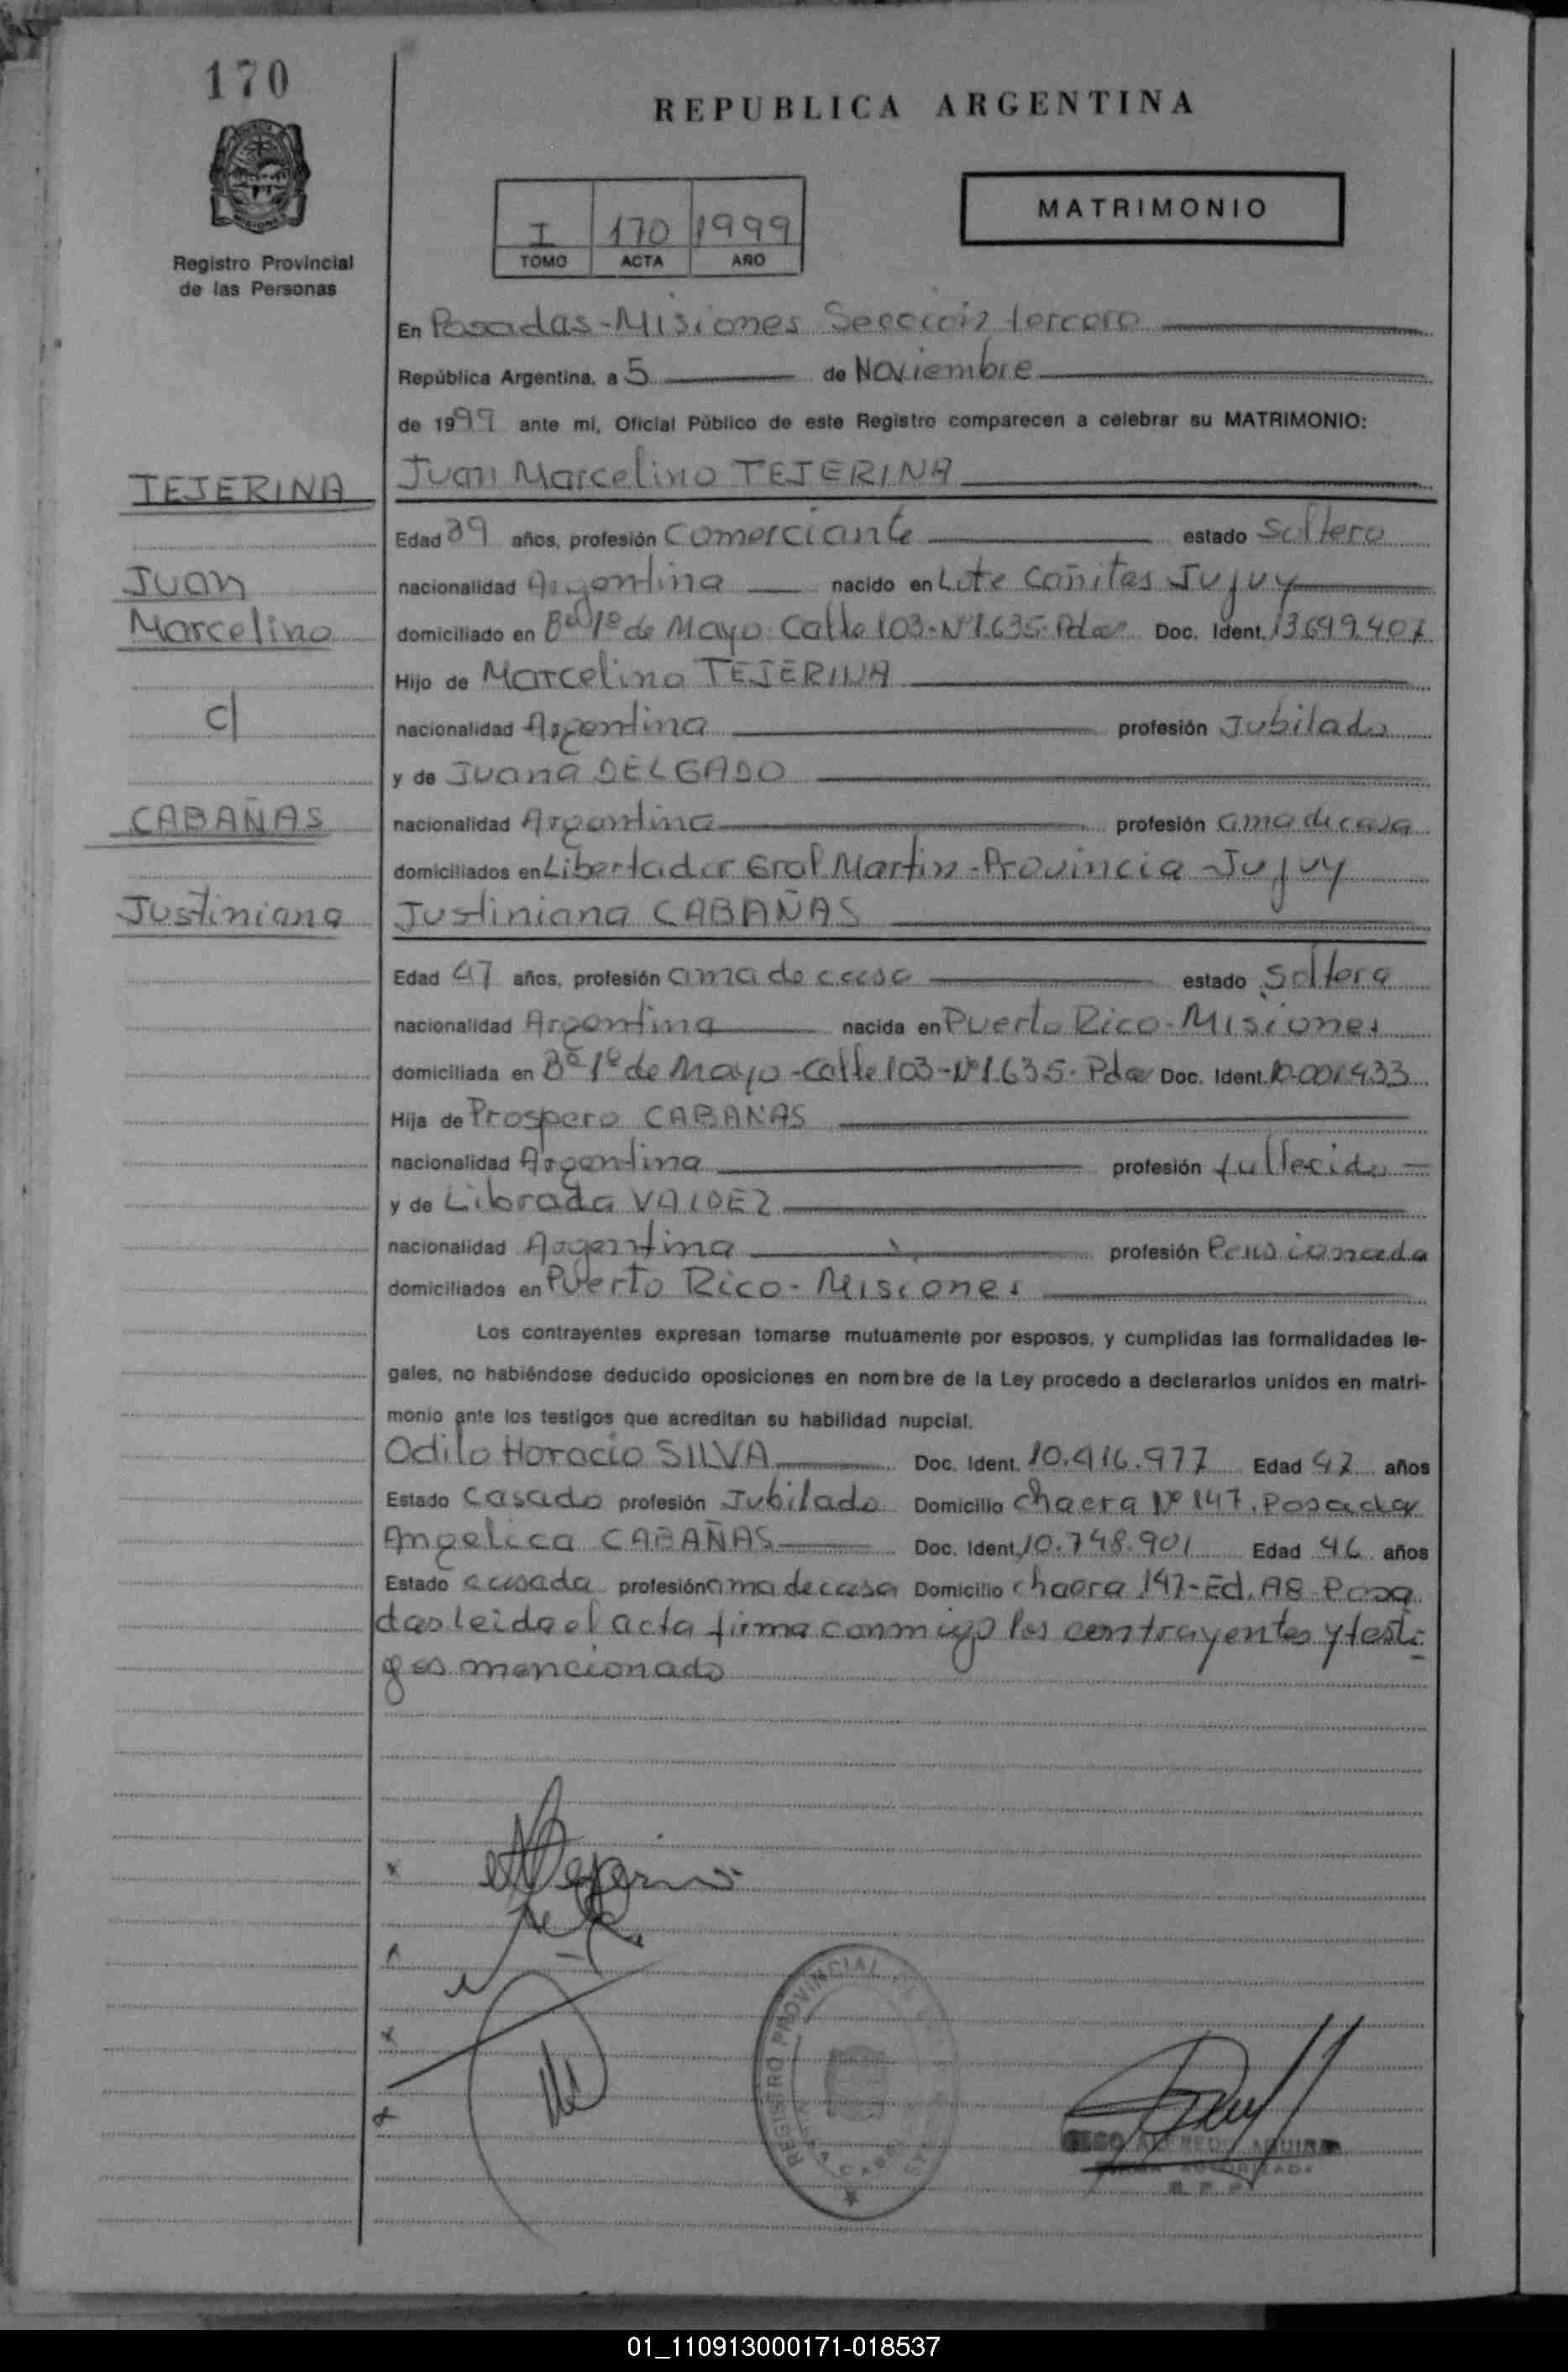 170
REPUBLICA ARGENTINA
MATRIMONIO
I 170 1999
TOMO ACTA AÑO
Registro Provincial
de las Personas
En Posadas-Misiones Sección tercera
República Argentina, a 5 de Noviembre
de 1999 ante mi, Oficial Público de este Registro comparecen a celebrar su MATRIMONIO:
TEJERINA
Juan Marcelino TEJERINA
Edad 39 años, profesión Comerciante estado Soltero
Juan
nacionalidad Argentina nacido en Lote Cañitas Jujuy
Marcelino
domiciliado en Bº 1º de Mayo-Calle 103-Nº1.635-Pdas Doc. Ident. 13.699.407
Hijo de Marcelino TEJERINA
c/
nacionalidad Argentina profesión Jubilado
y de Juana DELGADO
CABAÑAS
nacionalidad Argentina profesión ama de casa
domiciliados en Libertador Gral Martin-Provincia-Jujuy
Justiniana
Justiniana CABAÑAS
Edad 47 años, profesión ama de casa estado Soltera
nacionalidad Argentina nacida en Puerto Rico-Misiones
domiciliada en Bº 1º de Mayo-Calle 103-Nº1.635-Pdas Doc. Ident. 10.001.433
Hija de Prospero CABAÑAS
nacionalidad Argentina profesión fallecido
y de Librada VALDEZ
nacionalidad Argentina profesión Pensionada
domiciliados en Puerto Rico-Misiones
Los contrayentes expresan tomarse mutuamente por esposos, y cumplidas las formalidades le-
gales, no habiéndose deducido oposiciones en nombre de la Ley procedo a declararlos unidos en matri-
monio ante los testigos que acreditan su habilidad nupcial.
Odilo Horacio SILVA Doc. Ident. 10.416.977 Edad 47 años
Estado Casado profesión Jubilado Domicilio chacra Nº 147. Posadas
Angelica CABAÑAS Doc. Ident. 10.748.901 Edad 46 años
Estado casada profesión ama de casa Domicilio chacra 147-Ed. A8 Posa
das leido el acta firma conmigo los contrayentes y testi-
gos mencionado
REGISTRO PROVINCIAL
01_110913000171-018537